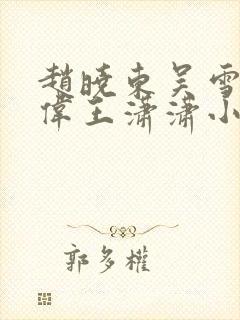 趙曉東吳雪
偉王瀟瀟小
郭多權